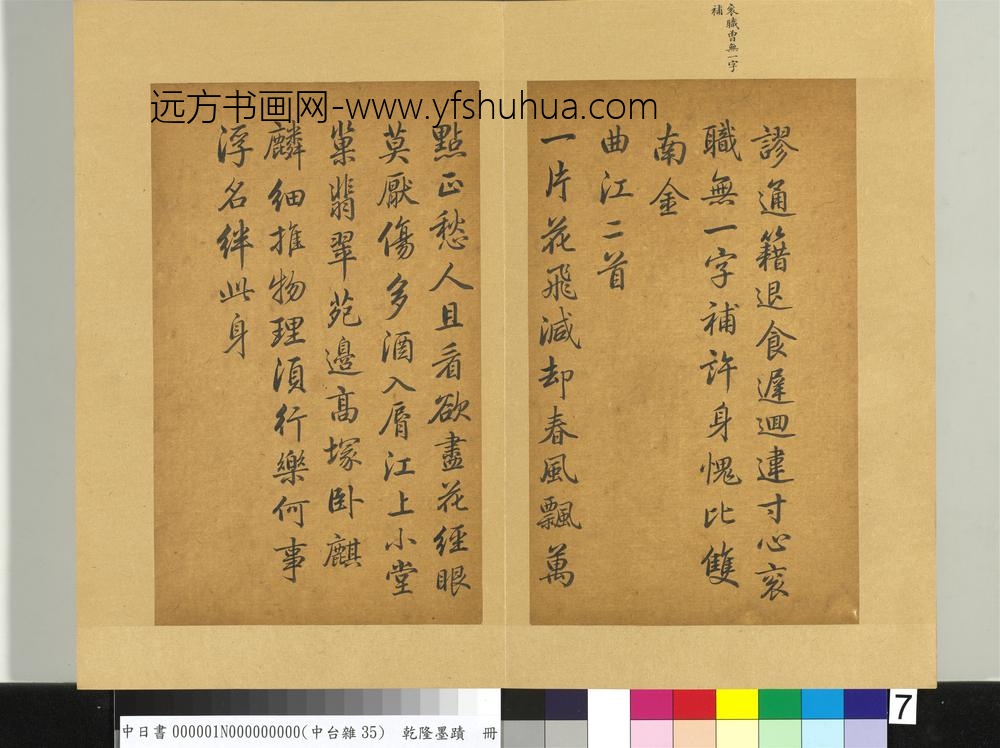 衮職曾無一字
補
远方书画网-www.yfshuhua.com
謬通籍退食遲迴違寸心衮
職無一字補許身愧比雙
南金
曲江二首
一片花飛減却春風飄萬
點正愁人且看欲盡花經眼
莫厭傷多酒入脣江上小堂
巢翡翠苑邊高塚卧麒
麟細推物理須行樂何事
浮名絆此身
7
中日書 000001N000000000(中台雜 35) 乾隆墨蹟 冊